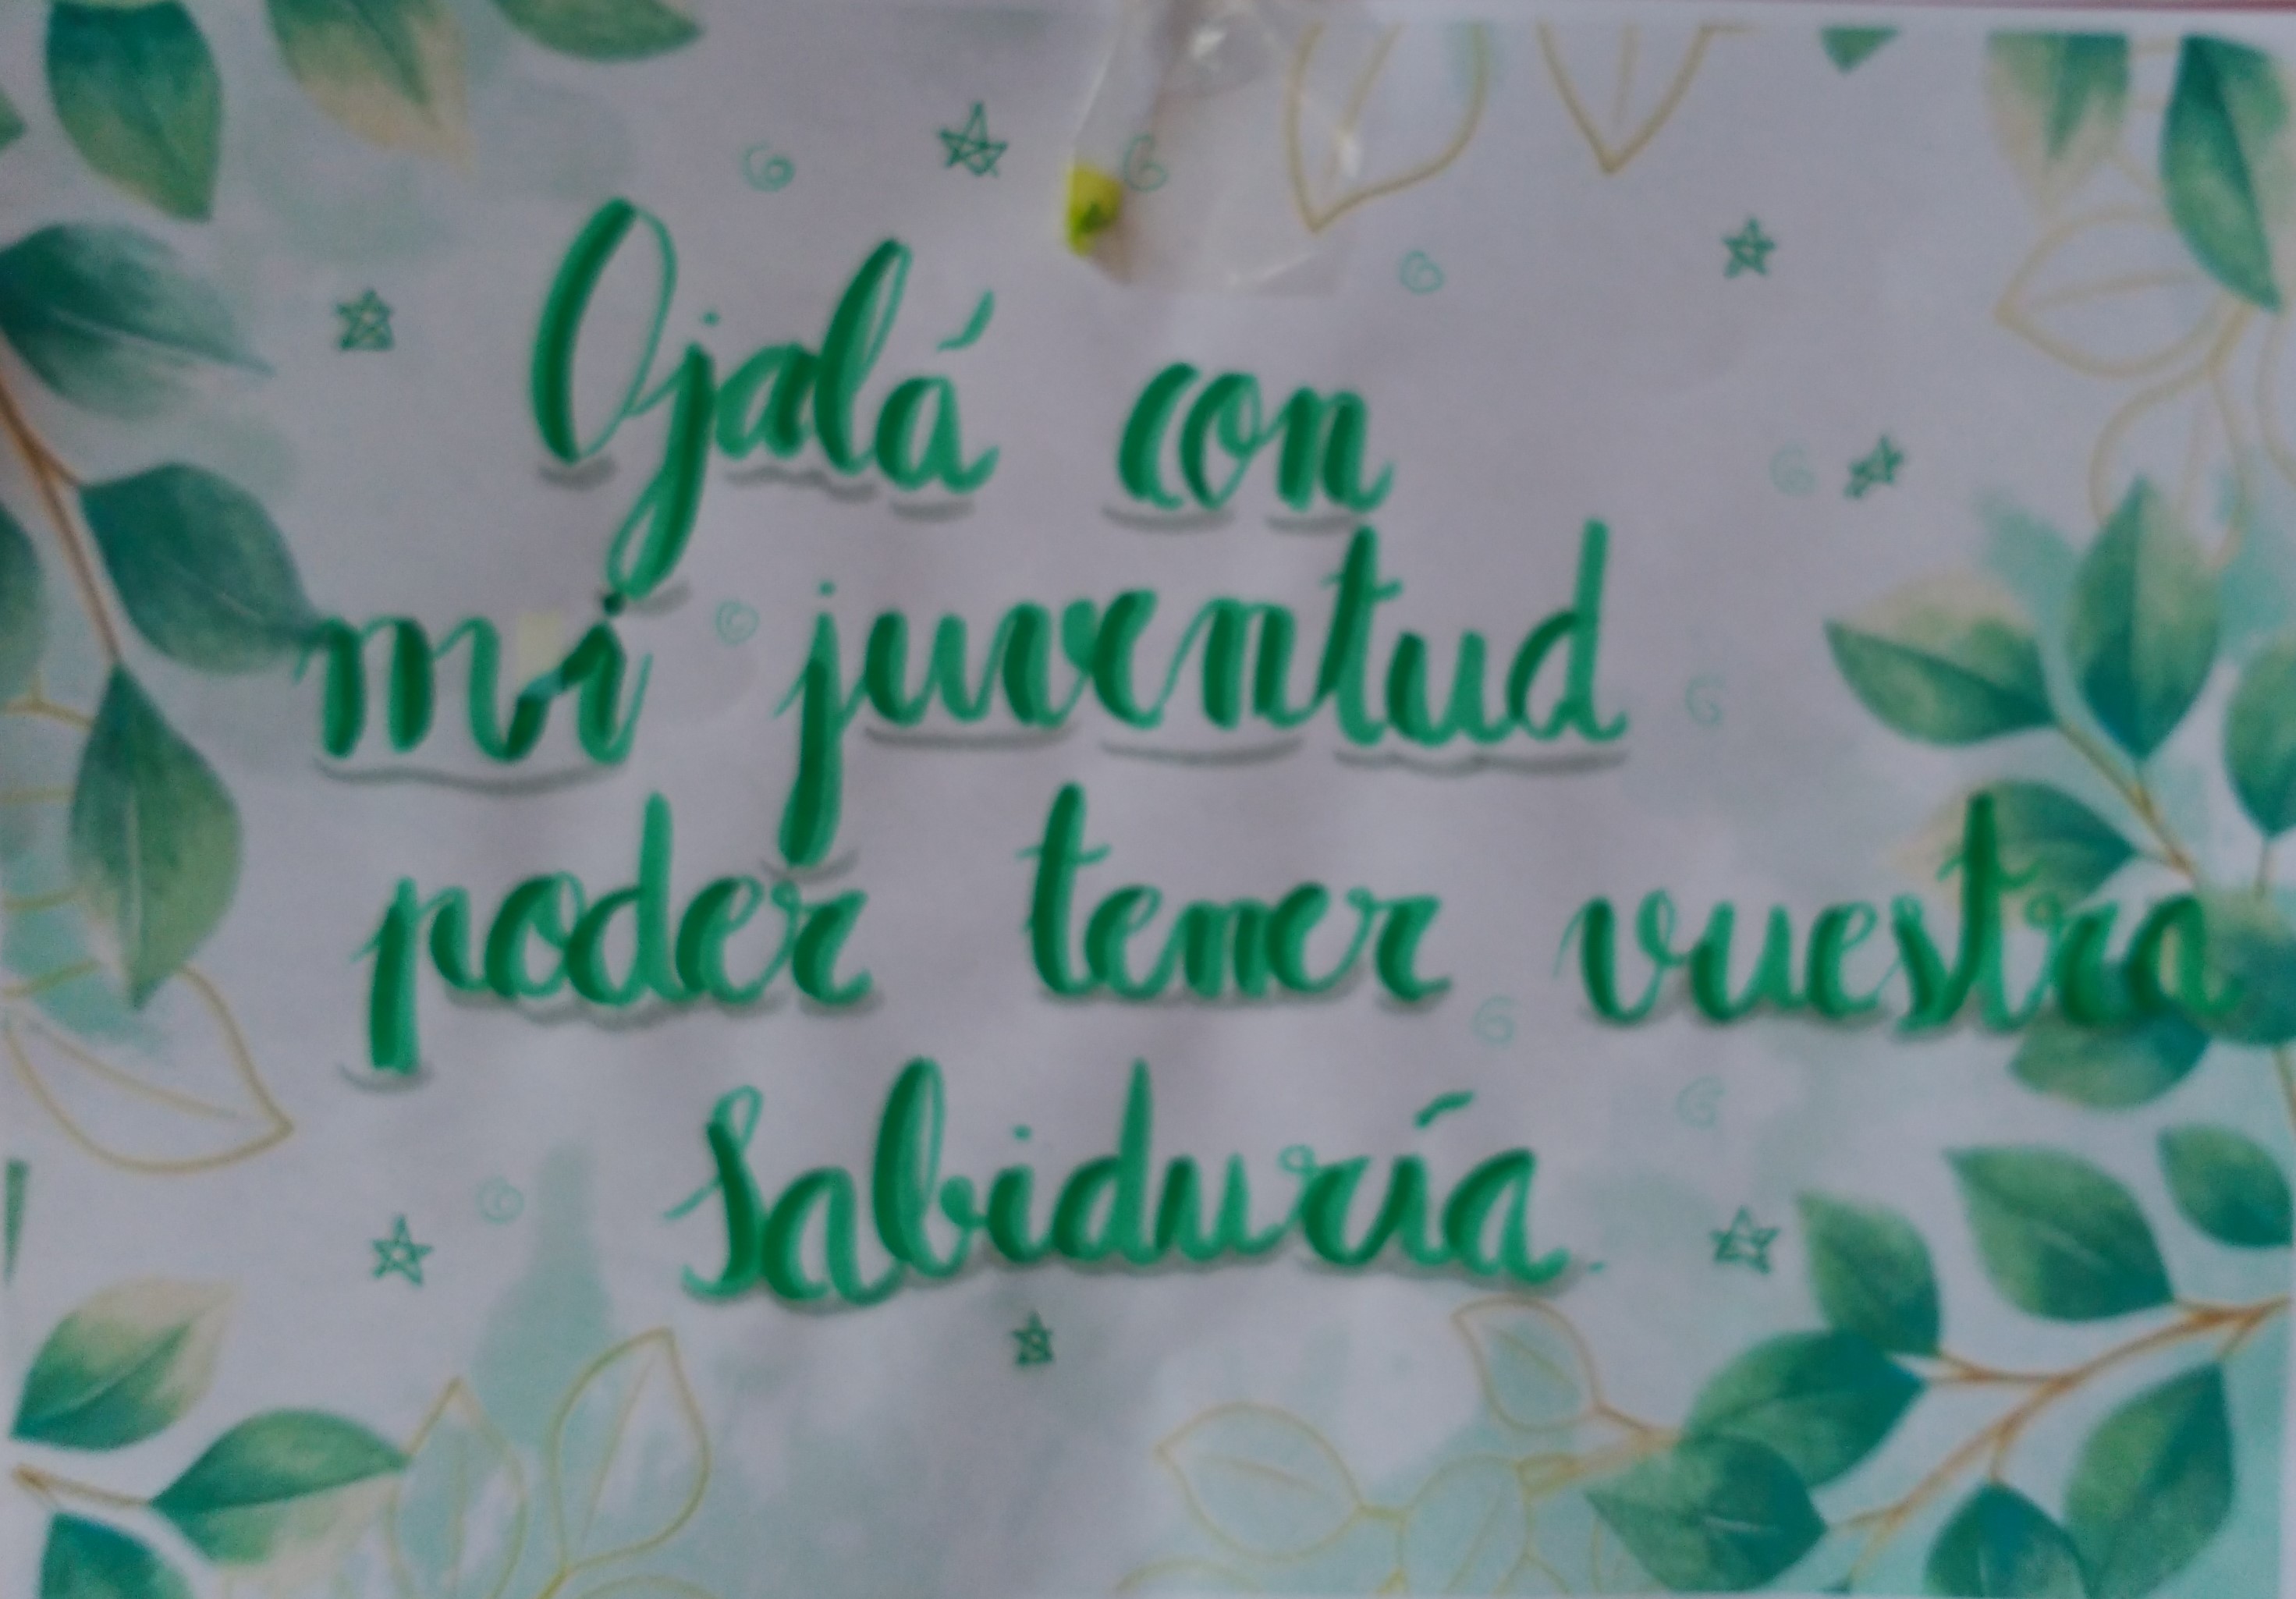 Ojalá con
mi juventud
poder tener vuestra
sabiduría.